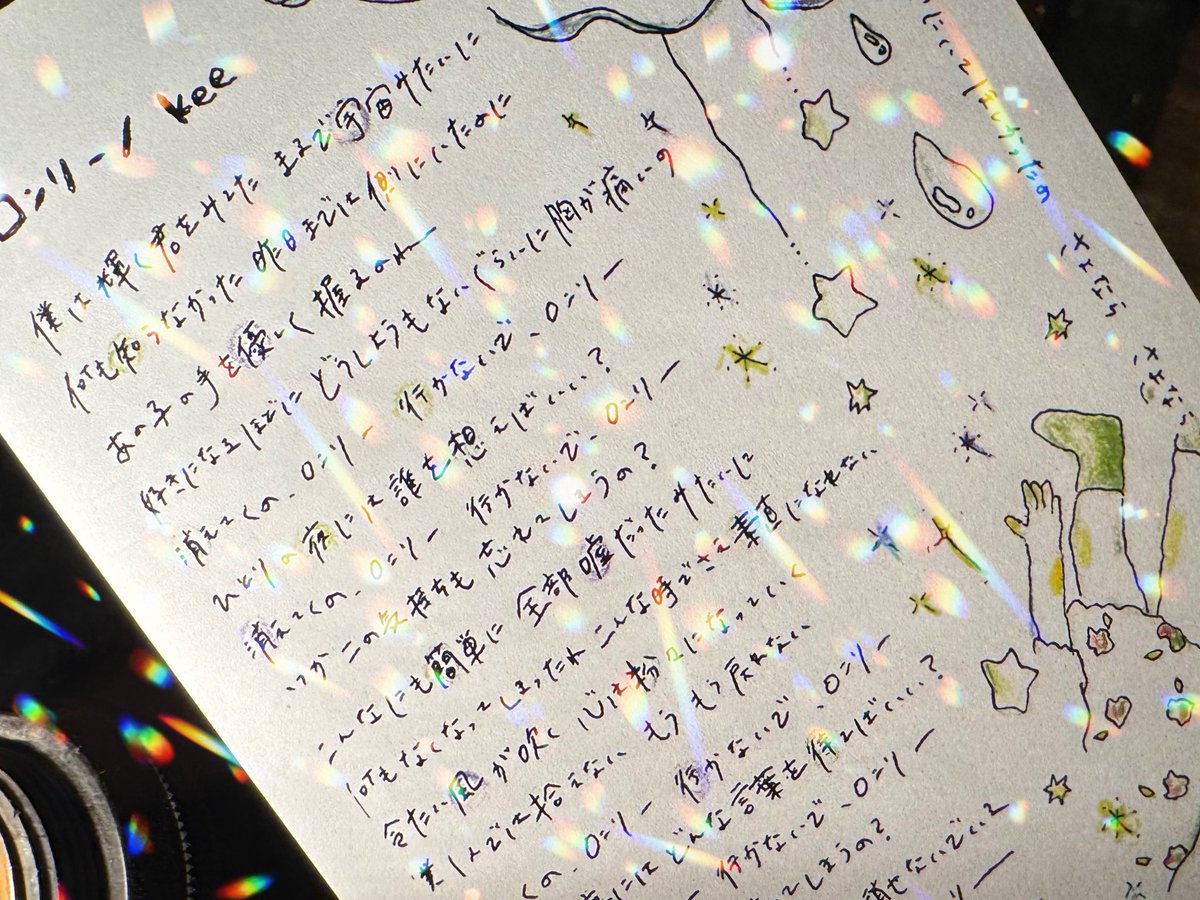 ロンリー/ kee
僕は輝く君をみてた まるで宇宙みたいに
何も知らなかった 昨日までは側にいたのに
あの子の手を優しく握るのね
好きになるほどに どうしようもないぐらいに胸が痛いの
消えてくの、ロンリー 行かないで、ロンリー
ひとりの夜には誰を想えばいい?
消えてくの、ロンリー 行かないで、ロンリー
いつかこの気持ちも忘れてしまうの?
こんなにも簡単に 全部嘘だったみたいに
何もなくなってしまったね こんな時でさえ素直になれない
冷たい風が吹く 心は粉々になっていく
美しくんでは拾えない もう もう戻れない
くの、ロンリー 行かないで、ロンリー
夜にはどんな言葉を待てばいい?
行かないで、ロンリー
てしまうの?
消せないでいる
さよなら
さよなら